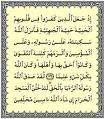 إِذْ جَعَلَ الَّذِينَ كَفَرُوا فِي قُلُوبِهِمُ
الْحَمِيَّةَ حَمِيَّةَ الْجَاهِلِيَّةِ فَأَنزَلَ اللَّهُ
سَكِينَتَهُ عَلَىٰ رَسُولِهِ وَعَلَى
الْمُؤْمِنِينَ وَأَلْزَمَهُمْ كَلِمَةَ التَّقْوَىٰ
وَكَانُوا أَحَقَّ بِهَا وَأَهْلَهَا وَكَانَ اللَّهُ
بِكُلِّ شَيْءٍ عَلِيمًا ٢٦ لَّقَدْ صَدَقَ اللَّهُ
رَسُولَهُ الرُّؤْيَا بِالْحَقِّ لَتَدْخُلُنَّ
الْمَسْجِدَ الْحَرَامَ إِن شَاءَ اللَّهُ